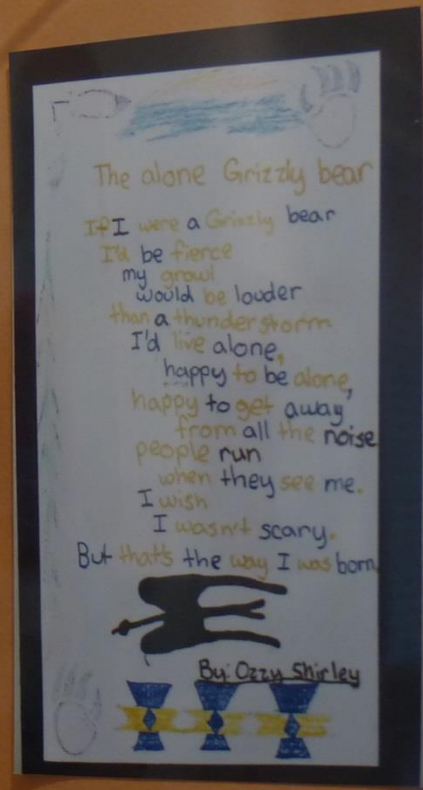 The alone Grizzly bear
If I were a Grizzly bear
I'd be fierce
my growl
would be louder
than a thunderstorm
I'd live alone,
happy to be alone,
happy to get away
from all the noise
people run
when they see me.
I wish
I wasn't scary.
But that's the way I was born
By: Ozzy Shirley